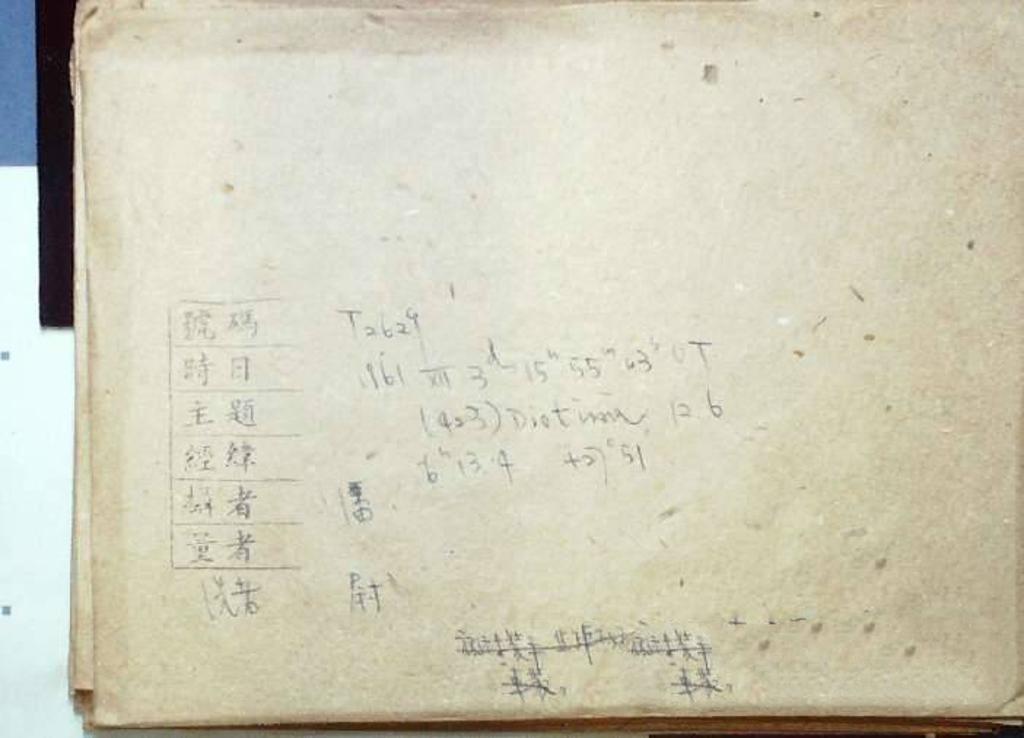 號碼 T2629
時日 1961 XII 3d 15h 55m 03s UT
主題 (423) Diotima 12.6
經緯 6h 13.4 +27° 51
攝者 潘
量者
洗者